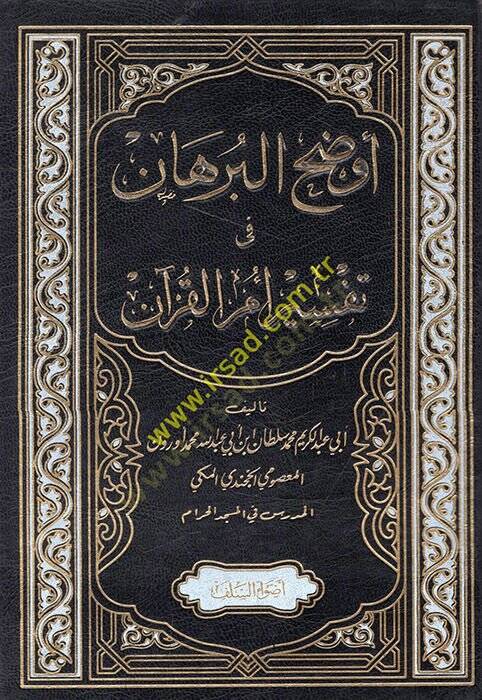 أوضح البرهان
في
تفسير أم القرآن
www.irsad.com.tr
تأليف
أبي عبد الكريم محمد سلطان ابن أبي عبد الله محمد أورون
المعصومي الخجندي المكي
المدرس في المسجد الحرام
أضواء السلف